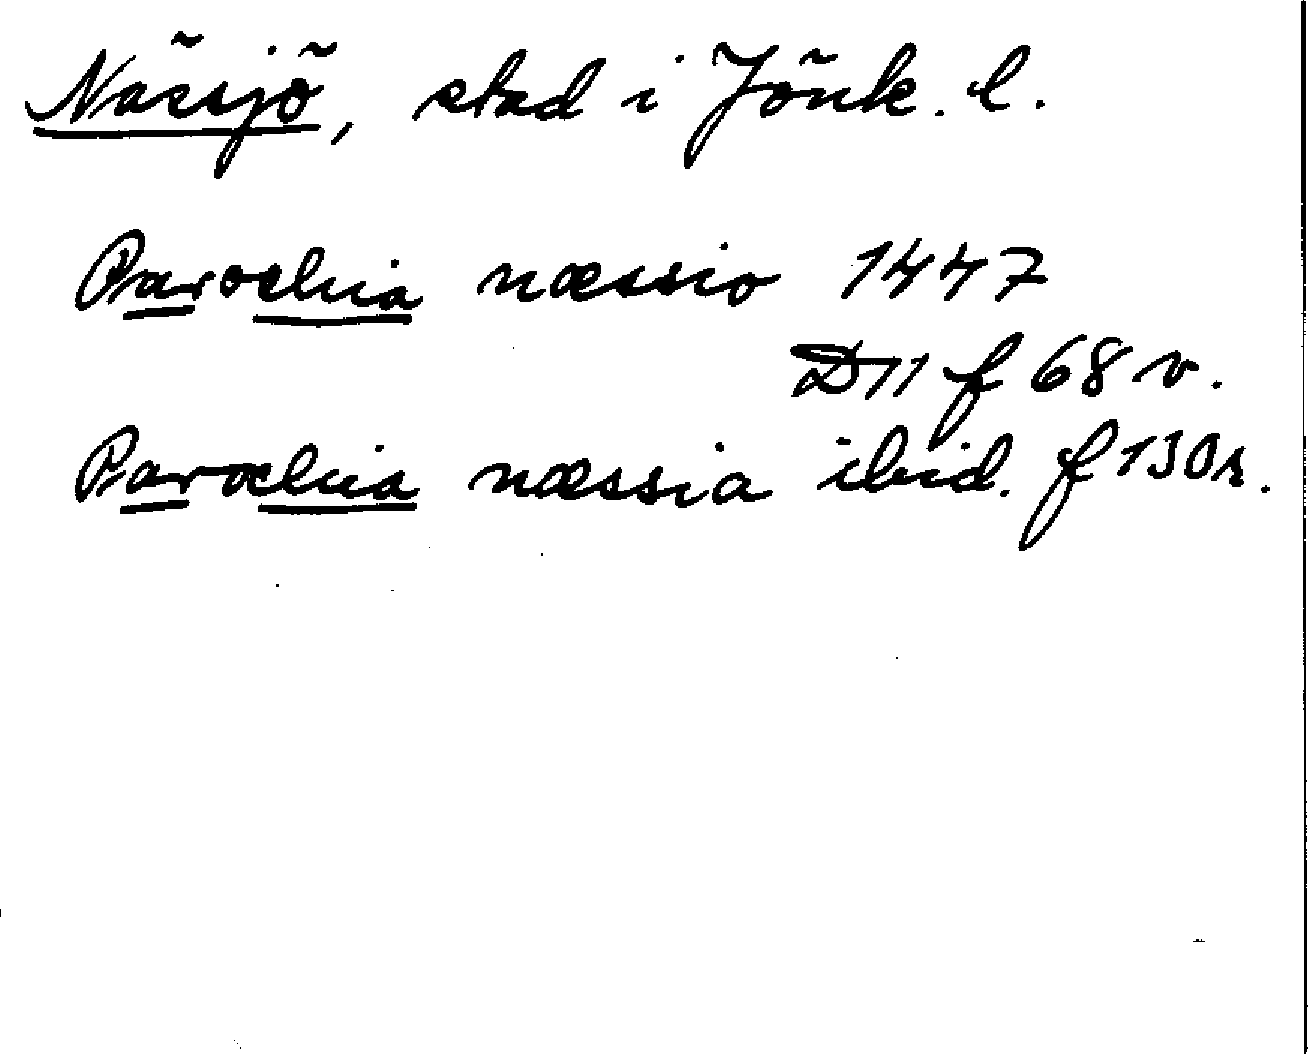 Nässjö, stad i Jönk. l.
Parochia næssio 1447
D11 f 68 v.
Parochia næssia ibid. f 130r.